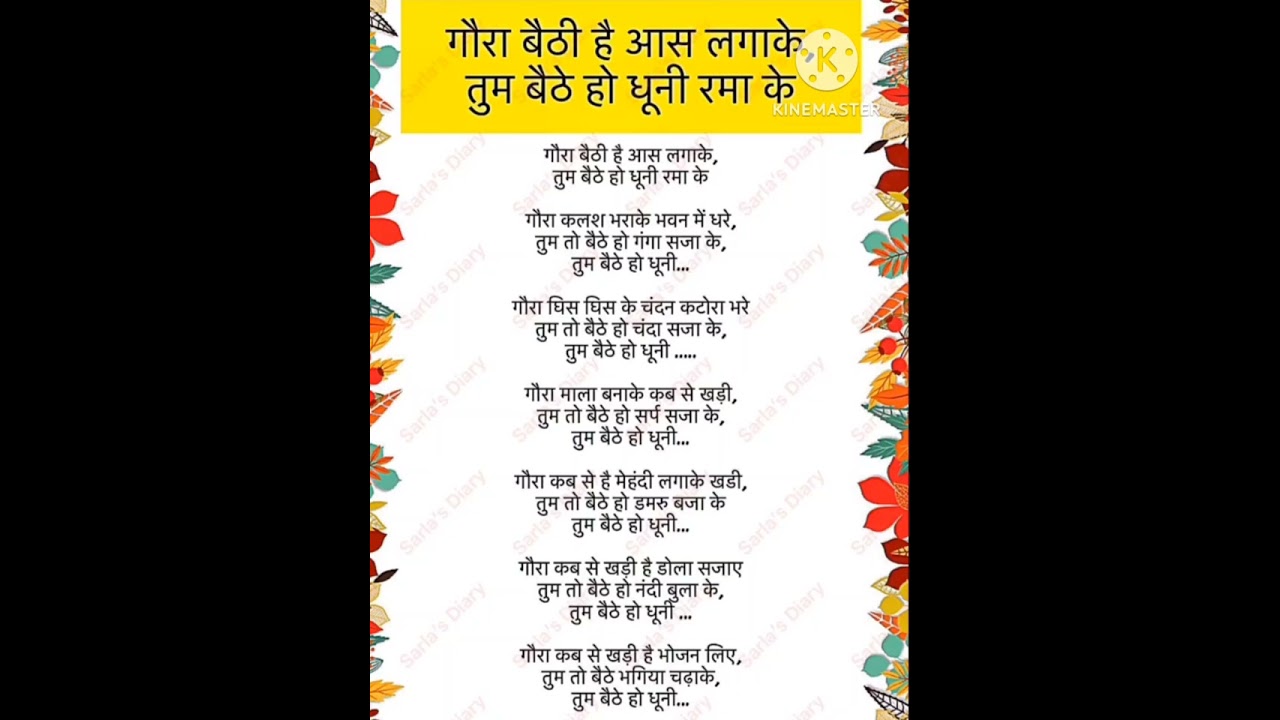 गौरा बैठी है आस लगाके
तुम बैठे हो धूनी रमा के
KINEMASTER
गौरा बैठी है आस लगाके,
तुम बैठे हो धूनी रमा के
गौरा कलश भराके भवन में धरे,
तुम तो बैठे हो गंगा सजा के,
तुम बैठे हो धूनी...
गौरा घिस घिस के चंदन कटोरा भरे
तुम तो बैठे हो चंदा सजा के,
तुम बैठे हो धूनी .....
गौरा माला बनाके कब से खड़ी,
तुम तो बैठे हो सर्प सजा के,
तुम बैठे हो धूनी...
गौरा कब से है मेहंदी लगाके खडी,
तुम तो बैठे हो डमरु बजा के
तुम बैठे हो धूनी...
गौरा कब से खड़ी है डोला सजाए
तुम तो बैठे हो नंदी बुला के,
तुम बैठे हो धूनी ...
गौरा कब से खड़ी है भोजन लिए,
तुम तो बैठे भगिया चढ़ाके,
तुम बैठे हो धूनी...
Sarla's Diary